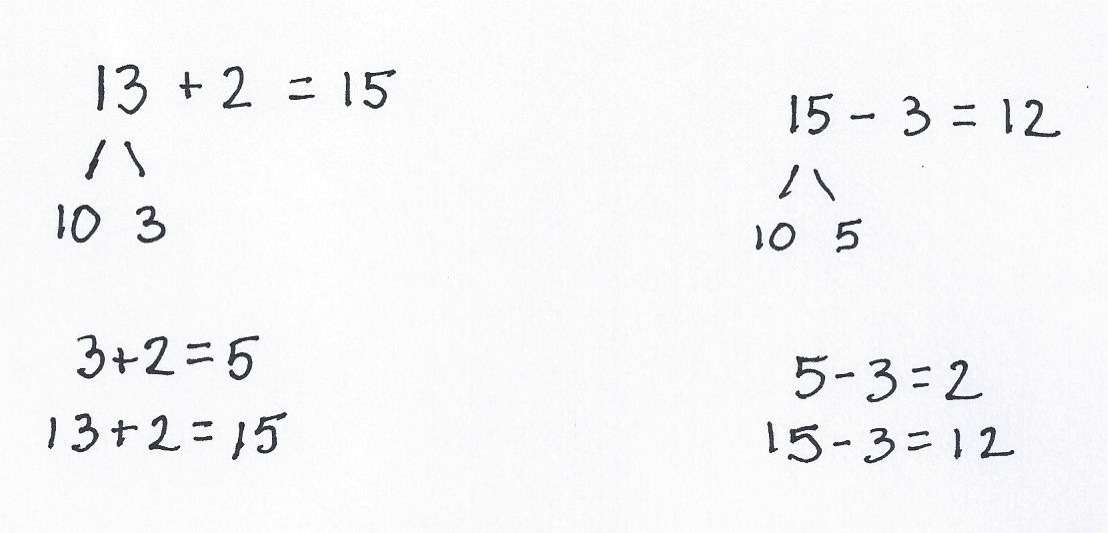 13 + 2 = 15
10 3
3+2=5
13+2=15
15 - 3 = 12
10 5
5-3=2
15-3=12